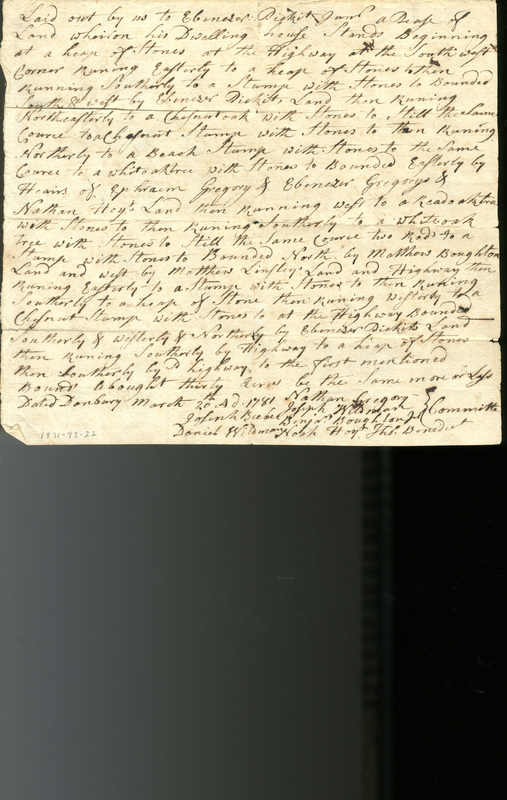 Laid out by us to Ebenezer Dickit Junr a Pease of
Land wheiron his Dwelling house Stands Beginning
at a heap of Stones at the Highway at the South west
Corner Runing Easterly to a heap of Stones to then
Running Southerly to a Stump with Stones to Bounded
South & west by Ebenezer Dickits Land then Runing
Northeasterly to a Chesnutoak with Stones to Still the Same
Cource to a Chesnut Stump with Stones to then Runing
Northerly to a Beach Stump with Stones to the Same
Cource to a whitoaktree with Stones to Bounded Easterly by
Heairs of Ephraim Gregory & Ebenezer Gregorys &
Nathan Hoyts Land then Running west to a Readoaktree
with Stones to then Runing Southerly to a whiteoak
tree with Stones to Still the Same Cource two Rods to a
Stump with Stones to Bounded North by Matthew Boughton
Land and west by Matthew Linsleys Land and Highway then
Runing Easterly to a Stump with Stones to then Runing
Southerly to a heap of Stone then Runing westerly to a
Chesnut Stump with Stones to at the Highway Bounded
Southerly & westerly & Northerly by Ebenezer Dickits Land
then Runing Southerly by Highway to a heap of Stones
then Southerly by sd highway to the first mentioned
Bounds abought thirty Acres be the Same more or Less
Dated Danbury March 20th AD 1781 Nathan Gregory
Joseph Beebe Joseph Wildman
Benjn Boughton Jr Committe
Daniel Wildman Noah Hoyt Ths Benedict
1971-93-22